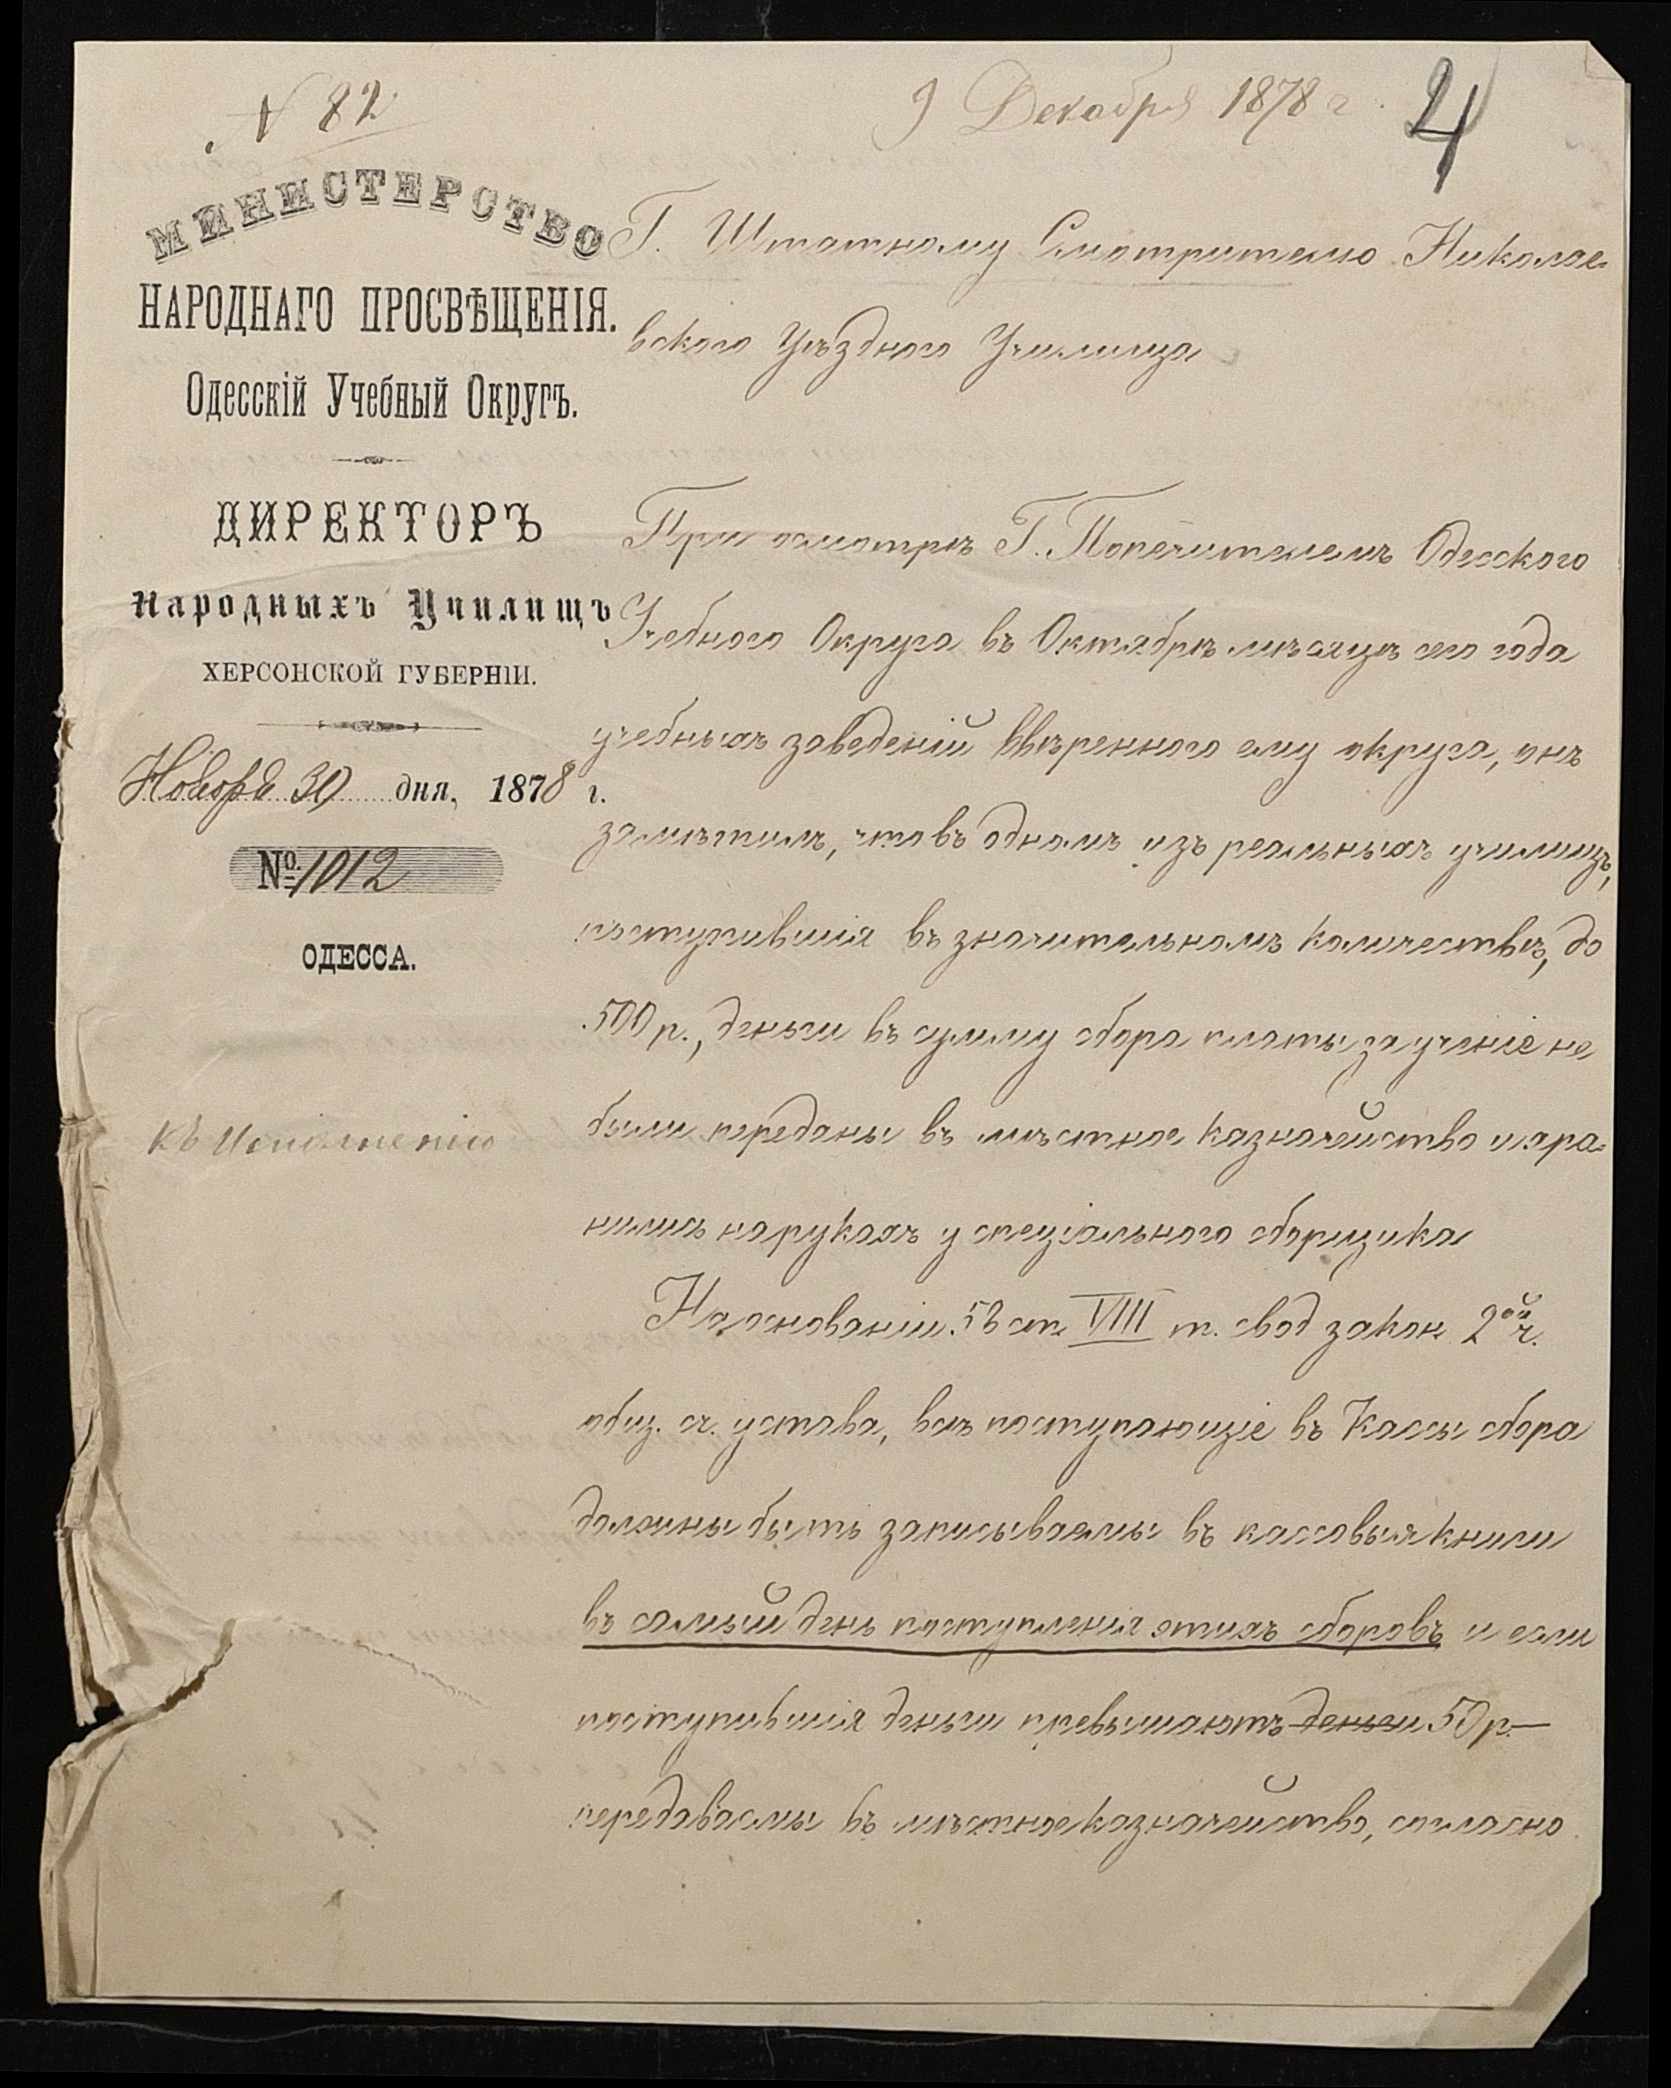 № 82
9 Декабря 1878 г.
4
МИНИСТЕРСТВО
НАРОДНАГО ПРОСВѢЩЕНІЯ.
Одесскій Учебный Округъ.
ДИРЕКТОРЪ
Народныхъ Училищъ
ХЕРСОНСКОЙ ГУБЕРНІИ.
Ноября 30 дня, 1878 г.
№ 1012
ОДЕССА.
Къ исполненію
Г. Штатному Смотрителю Николае-
вского Уѣздного Училища
При осмотрѣ Г. Попечителемъ Одесского
Учебного Округа въ Октябрѣ мѣсяцѣ сего года
учебныхъ заведеній ввѣренного ему округа, онъ
замѣтилъ, что въ одномъ изъ реальныхъ училищъ,
поступившія въ значительномъ количествѣ, до
500 р., деньги въ сумму сбора платы за ученіе не
были переданы въ мѣстное казначейство и хра-
нились на рукахъ у спеціального сборщика
На основаніи 58 ст VIII т. свод закон 2ой ч.
общ. сч. устава, всѣ поступающіе въ Кассы сбора
должны быть записываемы въ кассовыя книги
въ самый день поступленія этихъ сборовъ и если
поступившія деньги превышаютъ деньги 50 р.
передаваемы въ мѣстное казначейство, согласно